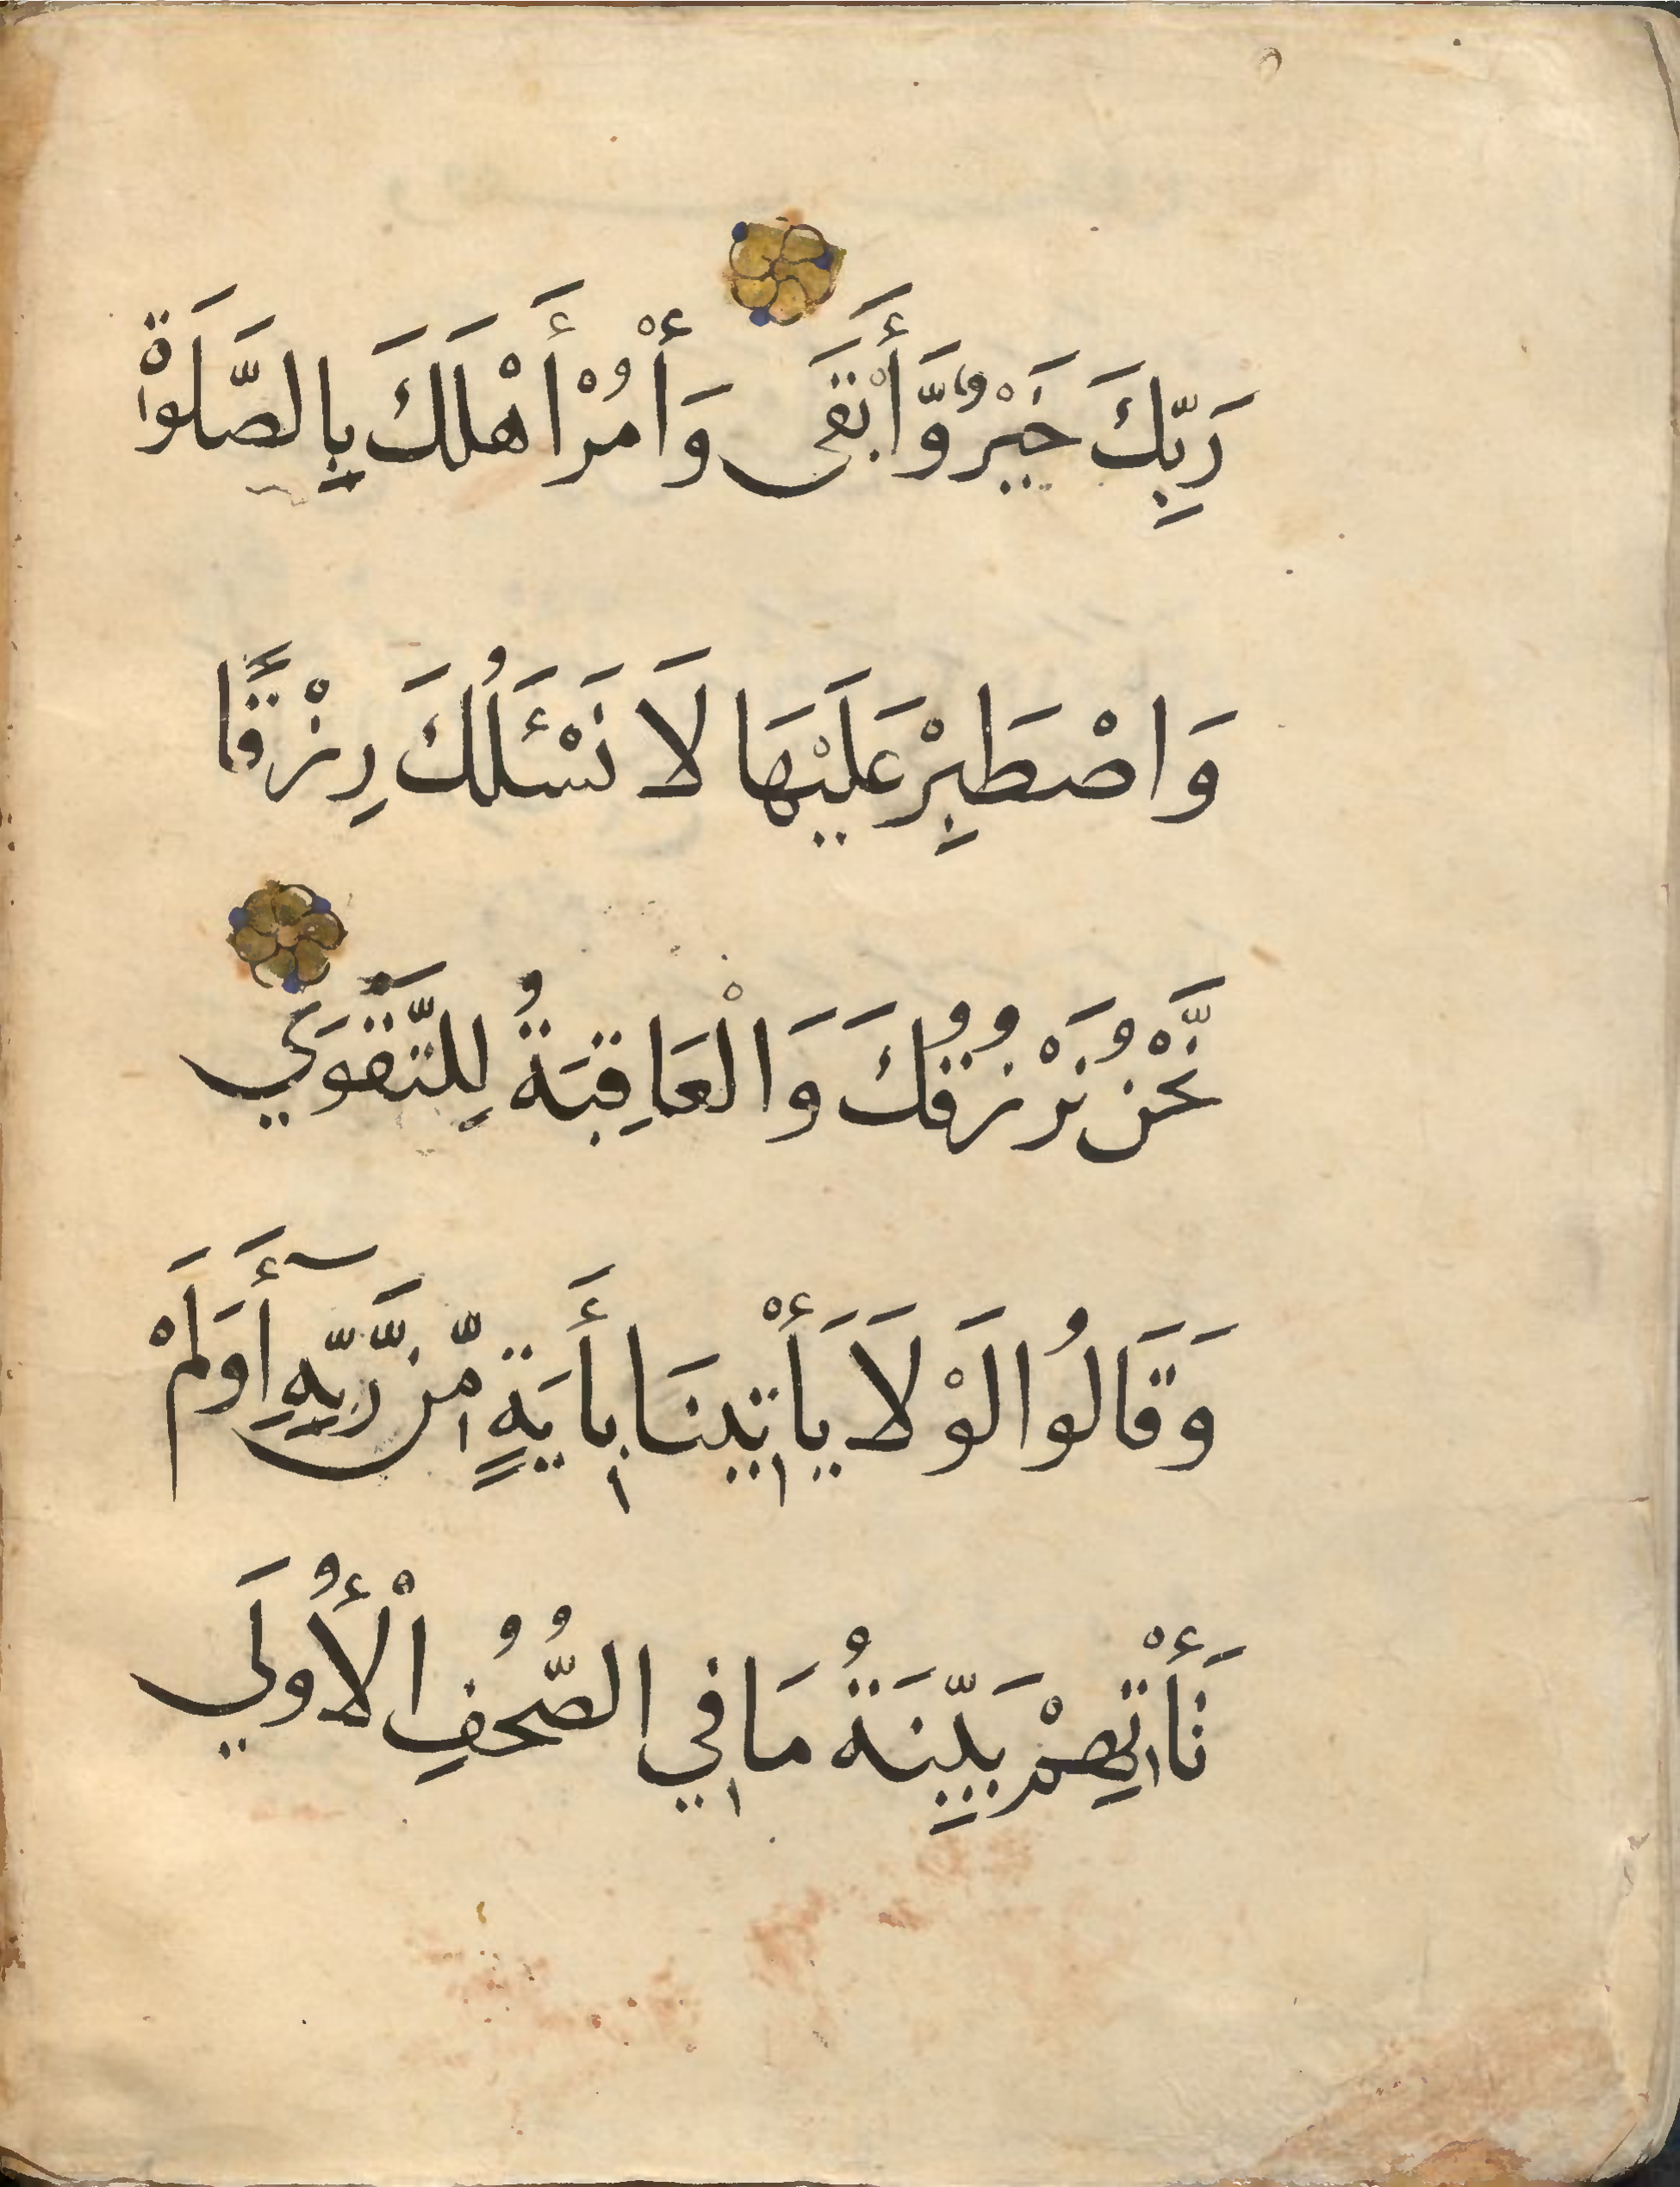 رَبِّكَ خَيْرٌ وَّأَبْقَى وَأْمُرْ أَهْلَكَ بِالصَّلَوٰةِ
وَاصْطَبِرْ عَلَيْهَا لَا نَسْـَٔلُكَ رِزْقًا
نَّحْنُ نَرْزُقُكَ وَالْعَاقِبَةُ لِلتَّقْوَي
وَقَالُوا لَوْلَا يَأْتِينَا بِأَيَةٍ مِّن رَّبِّهِ أَوَلَمْ
تَأْتِهِمْ بَيِّنَةُ مَا فِي الصُّحُفِ الْأُولَي